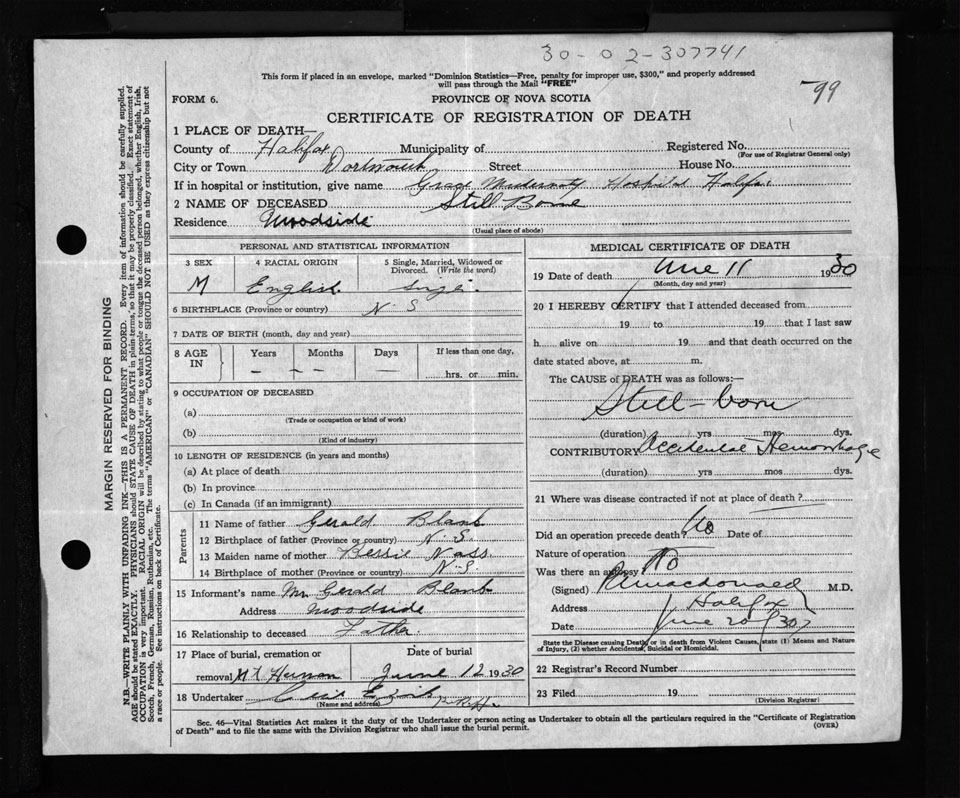 30-02-307741
This form if placed in an envelope, marked "Dominion Statistics—Free, penalty for improper use, $300," and properly addressed
will pass through the Mail "FREE"
799
FORM 6.
PROVINCE OF NOVA SCOTIA
CERTIFICATE OF REGISTRATION OF DEATH
1 PLACE OF DEATH—
County of Halifax Municipality of Registered No.
(For use of Registrar General only)
City or Town Dartmouth Street House No.
If in hospital or institution, give name Grace Maternity Hospital Halifax
2 NAME OF DECEASED Still Borne
Residence Woodside
(Usual place of abode)
PERSONAL AND STATISTICAL INFORMATION
3 SEX 4 RACIAL ORIGIN 5 Single, Married, Widowed or
Divorced. (Write the word)
M English Single
6 BIRTHPLACE (Province or country) N S
7 DATE OF BIRTH (month, day and year)
8 AGE IN Years Months Days If less than one day,
— — — — hrs. or min.
9 OCCUPATION OF DECEASED
(a)
(Trade or occupation or kind of work)
(b)
(Kind of industry)
10 LENGTH OF RESIDENCE (in years and months)
(a) At place of death
(b) In province
(c) In Canada (if an immigrant)
Parents
11 Name of father Gerald Blank
12 Birthplace of father (Province or country) N. S.
13 Maiden name of mother Bessie Nass
14 Birthplace of mother (Province or country) N-S.
15 Informant's name Mr Gerald Blank
Address Woodside
16 Relationship to deceased Father
17 Place of burial, cremation or Date of burial
removal Mt Hermon June 12 1930
18 Undertaker
(Name and address)
MEDICAL CERTIFICATE OF DEATH
19 Date of death June 11 1930
(Month, day and year)
20 I HEREBY CERTIFY that I attended deceased from
19 to 19 that I last saw
h alive on 19 and that death occurred on the
date stated above, at m.
The CAUSE of DEATH was as follows:—
Still-born
(duration) yrs mos dys.
CONTRIBUTORY Accidental Hemorrhage
(duration) yrs mos dys.
21 Where was disease contracted if not at place of death?
Did an operation precede death? No Date of
Nature of operation
Was there an autopsy No
(Signed) Macdonald M.D.
Address Halifax
Date June 20/30
State the Disease causing Death, or in death from Violent Causes, state (1) Means and Nature
of Injury, (2) whether Accidental, Suicidal or Homicidal.
22 Registrar's Record Number
23 Filed 19
(Division Registrar)
Sec. 46—Vital Statistics Act makes it the duty of the Undertaker or person acting as Undertaker to obtain all the particulars required in the "Certificate of Registration
of Death" and to file the same with the Division Registrar who shall issue the burial permit.
(OVER)
MARGIN RESERVED FOR BINDING
N.B.—WRITE PLAINLY WITH UNFADING INK—THIS IS A PERMANENT RECORD. Every item of information should be carefully supplied.
AGE should be stated EXACTLY. PHYSICIANS should STATE CAUSE OF DEATH in plain terms, so that it may be properly classified. Exact statement of
OCCUPATION is very important. RACIAL ORIGIN will be described by stating to what people or tongue the deceased person belonged, whether English, Irish,
Scotch, French, German, Russian, Ruthenian, etc. The terms "AMERICAN" or "CANADIAN" SHOULD NOT BE USED as they express citizenship but not
a race or people. See instructions on back of Certificate.